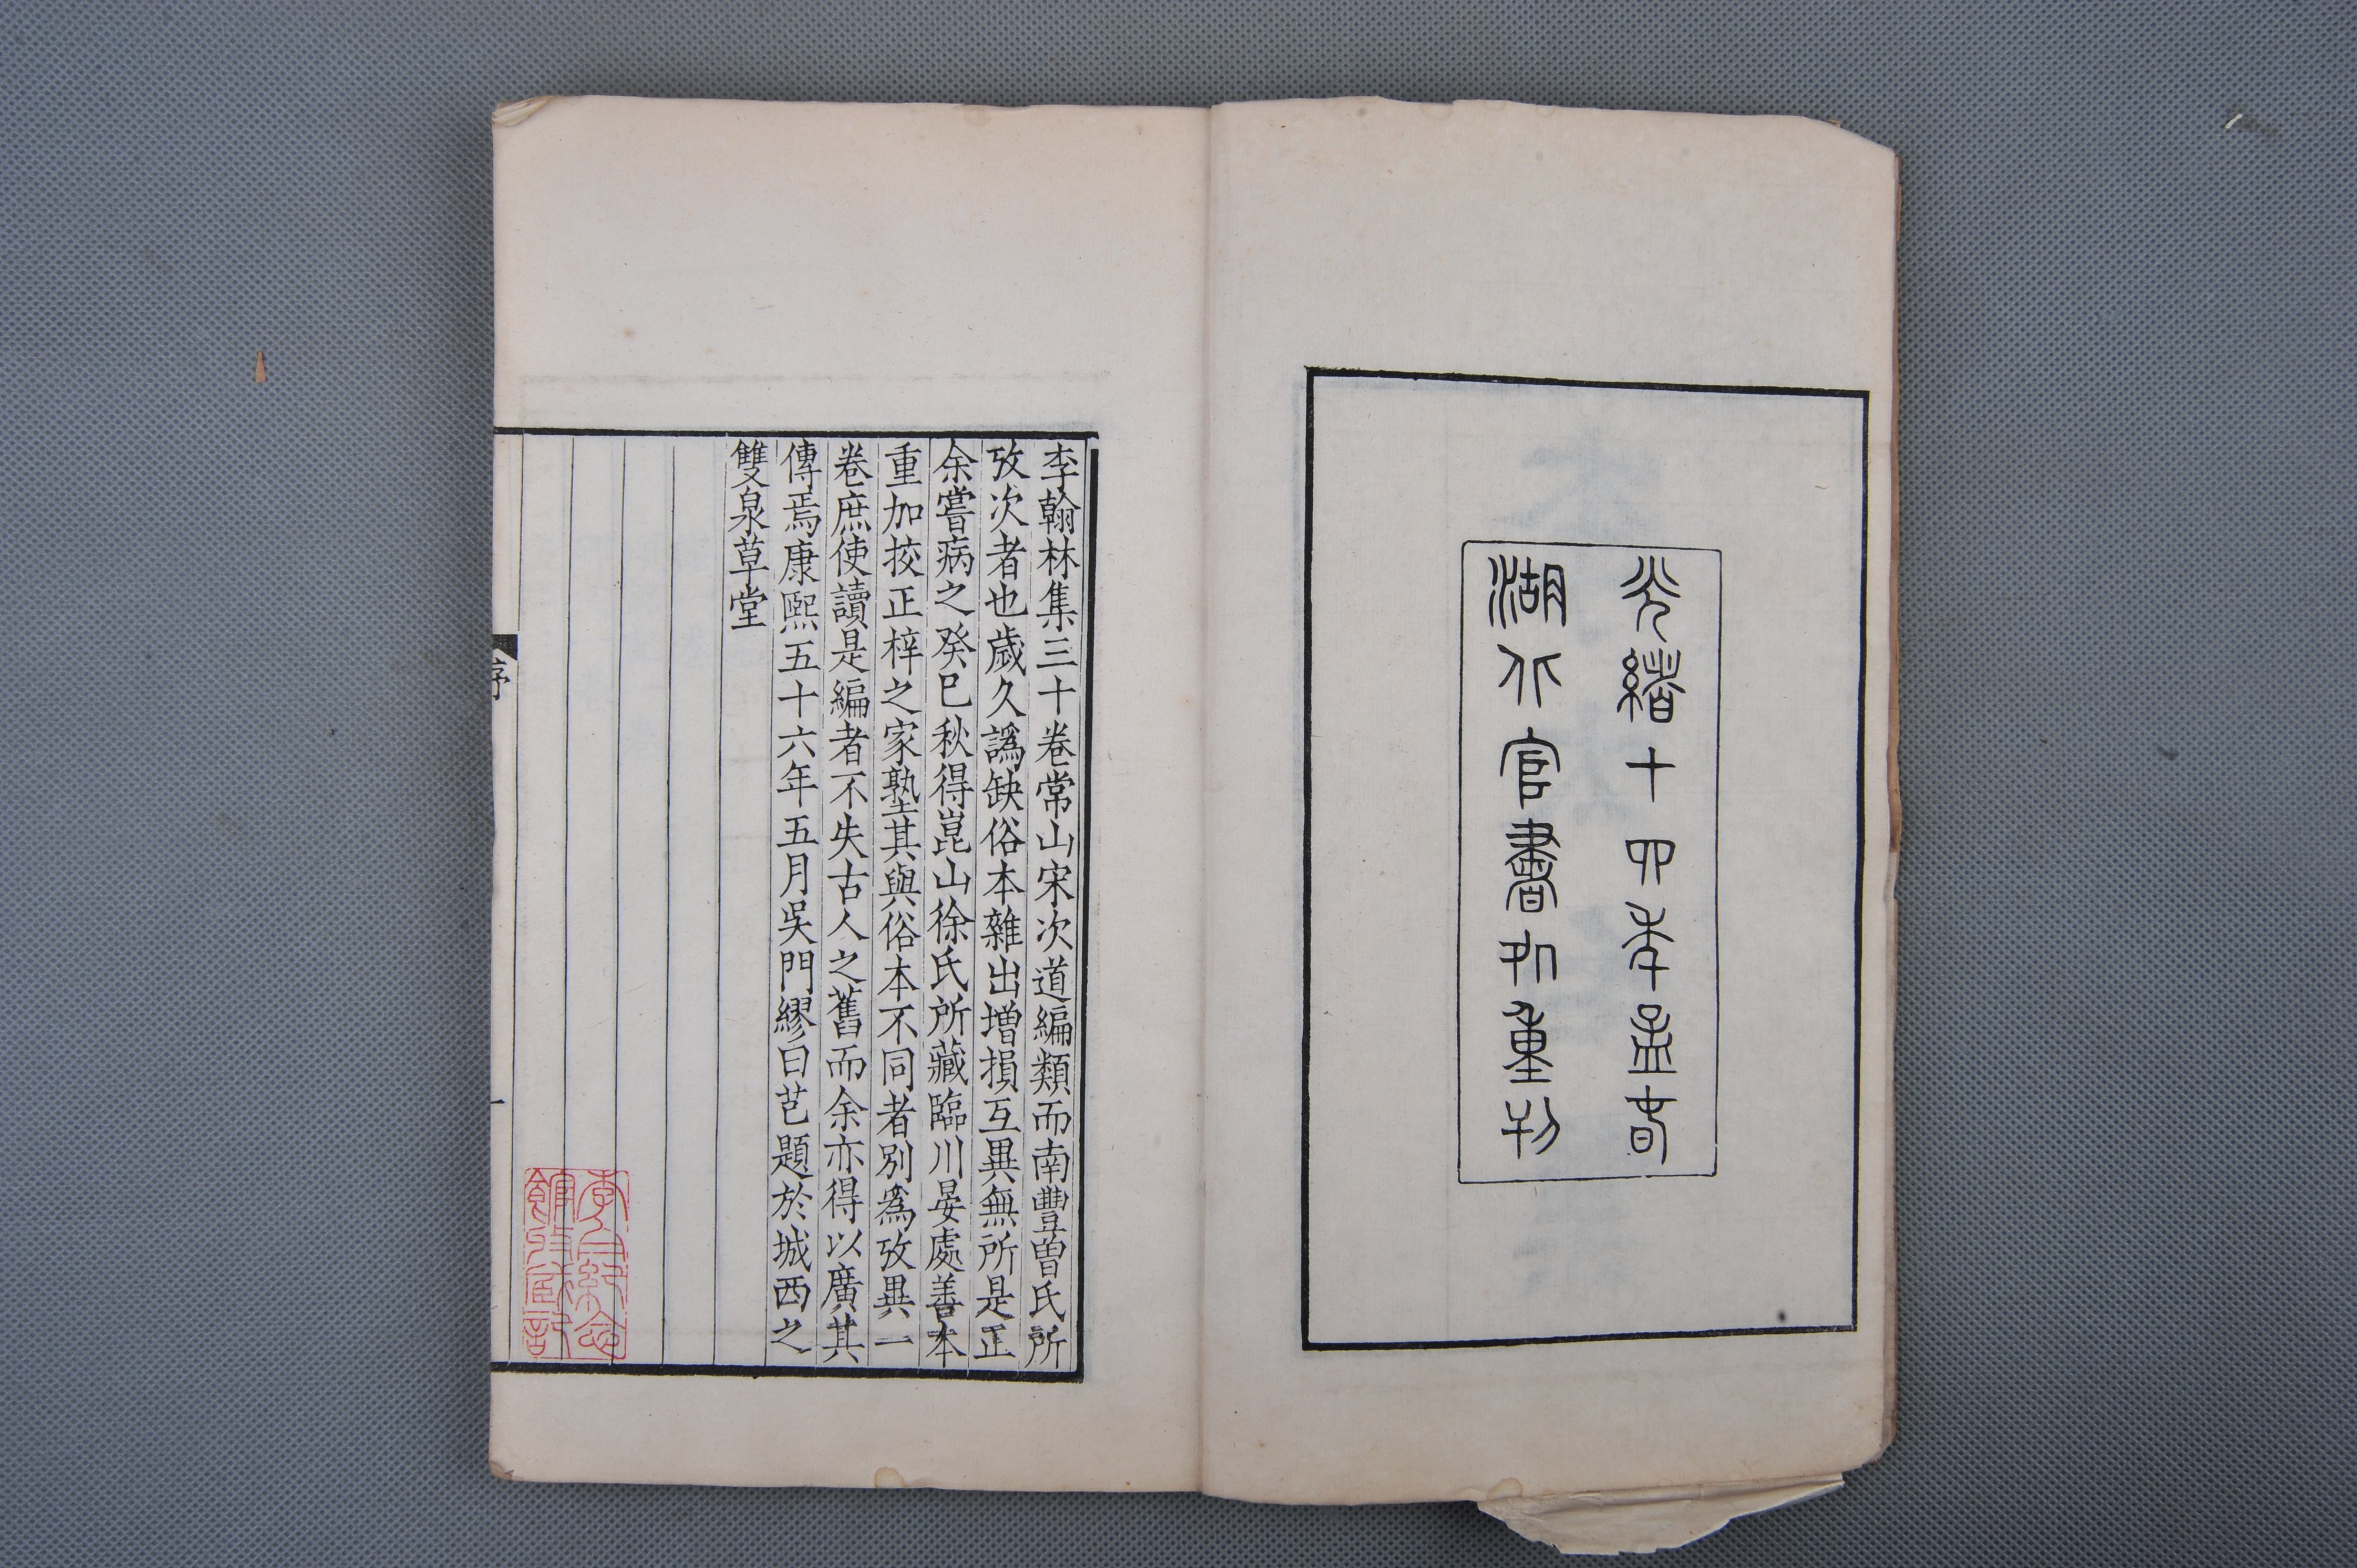 光緒十四年孟春
湖北官書処重刊
李翰林集三十卷常山宋次道編類而南豐曾氏所
攷次者也歲久譌缺俗本雜出增損互異無所是正
余嘗病之癸巳秋得崑山徐氏所藏臨川晏處善本
重加挍正梓之家塾其與俗本不同者別爲攷異一
卷庶使讀是編者不失古人之舊而余亦得以廣其
傳焉康熙五十六年五月吳門繆曰芑題於城西之
雙泉草堂
序
一
李白紀念
館收藏記